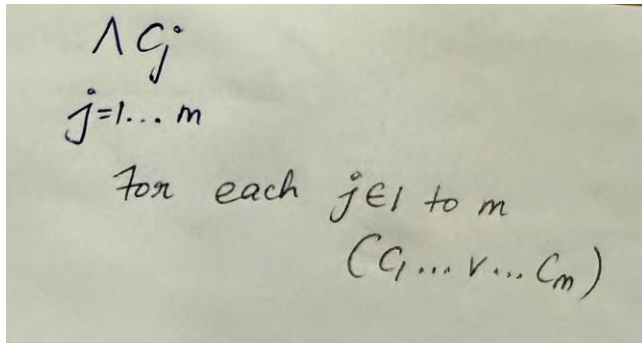 ∧ Cj
j=1... m
For each j∈1 to m
(C1 ... v ... Cm)